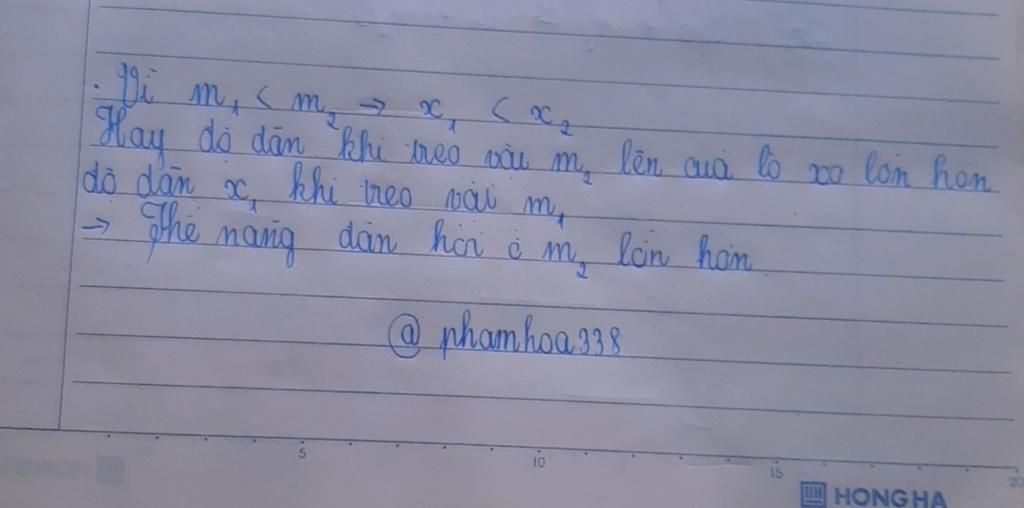 . Vì m₁ < m₂ → x₁ < x₂
Hay độ dãn khi treo vâu m₂ lên quả lò xo lớn hơn
độ dãn x₁ khi treo vâi m₁
→ Thế năng dàn hồi ở m₂ lớn hơn
@ phamhoa338
5 10 15 20
HONG HA